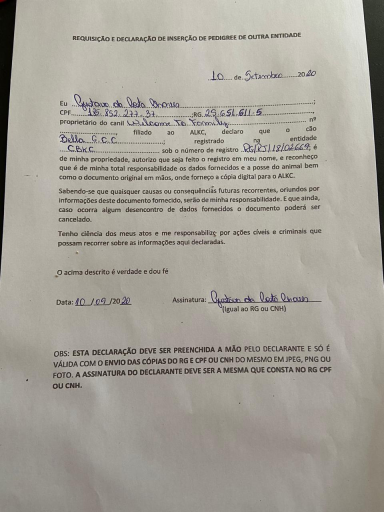 REQUISIÇÃO E DECLARAÇÃO DE INSERÇÃO DE PEDIGREE DE OUTRA ENTIDADE
10 de Setembro 2020
Eu Gustavo da
CPF RG 29.651.611-5
proprietário do canil Welcome To Family nº
filiado ao ALKC, declaro que o cão
Bella C.C.C. registrado na entidade
CBKC sob o número de registro RG/RJ/18/02669, é
de minha propriedade, autorizo que seja feito o registro em meu nome, e reconheço
que é de minha total responsabilidade os dados fornecidos e a posse do animal bem
como o documento original em mãos, onde forneço a cópia digital para o ALKC.
Sabendo-se que quaisquer causas ou consequências futuras recorrentes, oriundos por
informações deste documento fornecido, serão de minha responsabilidade. E que ainda,
caso ocorra algum desencontro de dados fornecidos o documento poderá ser
cancelado.
Tenho ciência dos meus atos e me responsabilizo por ações cíveis e criminais que
possam recorrer sobre as informações aqui declaradas.
O acima descrito é verdade e dou fé
Data: 10/09/2020 Assinatura: Gustavo da
(Igual ao RG ou CNH)
OBS: ESTA DECLARAÇÃO DEVE SER PREENCHIDA A MÃO PELO DECLARANTE E SÓ É
VÁLIDA COM O ENVIO DAS CÓPIAS DO RG E CPF OU CNH DO MESMO EM JPEG, PNG OU
FOTO. A ASSINATURA DO DECLARANTE DEVE SER A MESMA QUE CONSTA NO RG CPF
OU CNH.